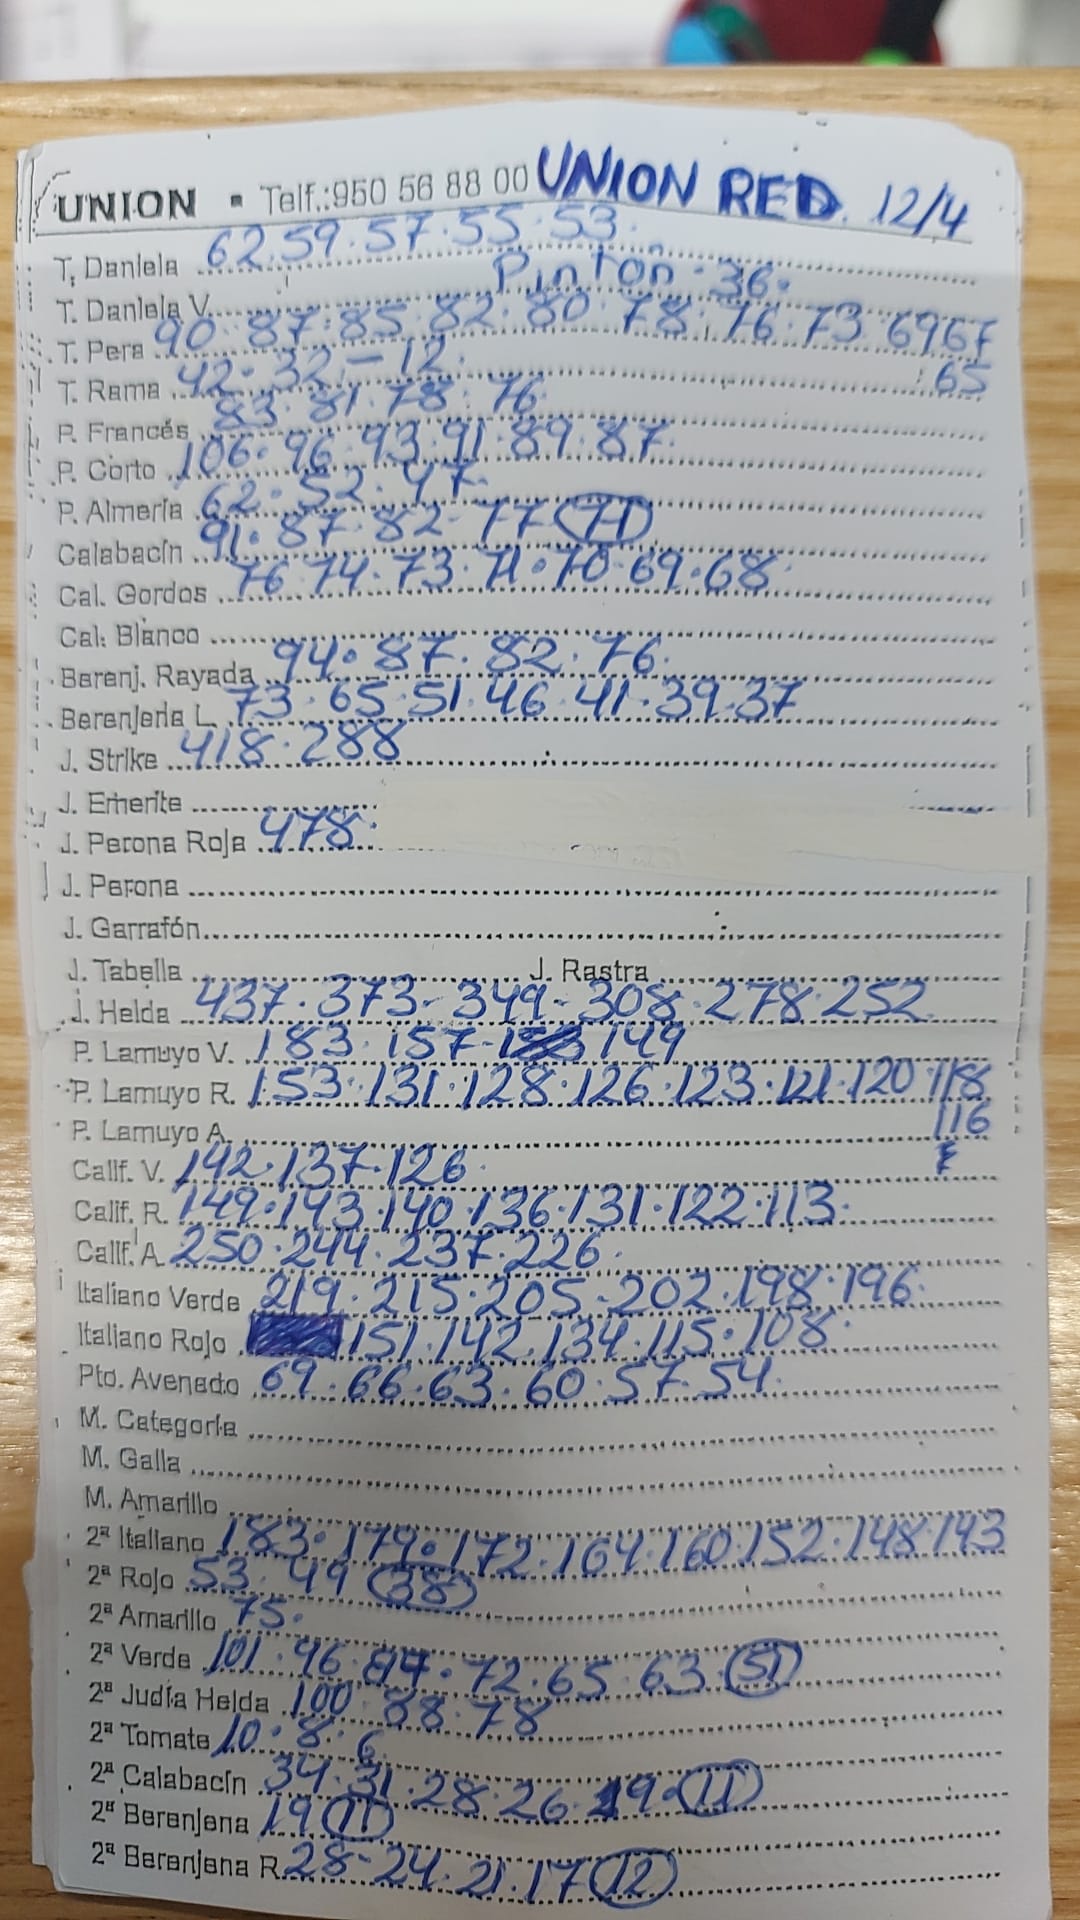 UNION ▪ Telf.:950 56 88 00 UNION RED. 12/4
T. Daniela 62.59.57.55.53.
T. Daniela V. Pinton.36.
T. Pera 90.87.85.82.80.78.76.73.69 67
65
T. Rama 42.32.-12.
P. Francés 83.81.78.76.
P. Corto 106.96.93.91.89.87.
P. Almería 62.52.47.
Calabacín 91.87.82-77 (71)
Cal. Gordos 76.74.73.71.70.69.68.
Cal. Blanco
Berenj. Rayada 94.87.82.76.
Berenjena L. 73.65.51.46.41.39.37
J. Strike 418.288
J. Emerite
J. Perona Roja 478.
J. Perona
J. Garrafón
J. Tabella J. Rastra
J. Helda 437.373-349-308.278.252.
P. Lamuyo V. 183.157-149
P. Lamuyo R. 153.131.128.126.123.121.120.118
116
P. Lamuyo A.
Calif. V. 142.137.126.
Calif. R. 149.143.140.136.131.122.113.
Calif. A. 250.244.237.226.
Italiano Verde 219.215.205-202.198.196.
Italiano Rojo 151.142.134.115.108.
Pto. Avenado 69.66.63.60.57.54.
M. Categoría
M. Galia
M. Amarillo
2ª Italiano 183.179.172.164.160.152.148.143
2ª Rojo 53.49 (38)
2ª Amarillo 75.
2ª Verde 101.96.72.65.63.(51)
2ª Judía Helda 100.88.78
2ª Tomate 10.8.6
2ª Calabacín 34.31.28.26.19.(11)
2ª Berenjena 19 (11)
2ª Berenjena R. 28-24.21.17 (12)